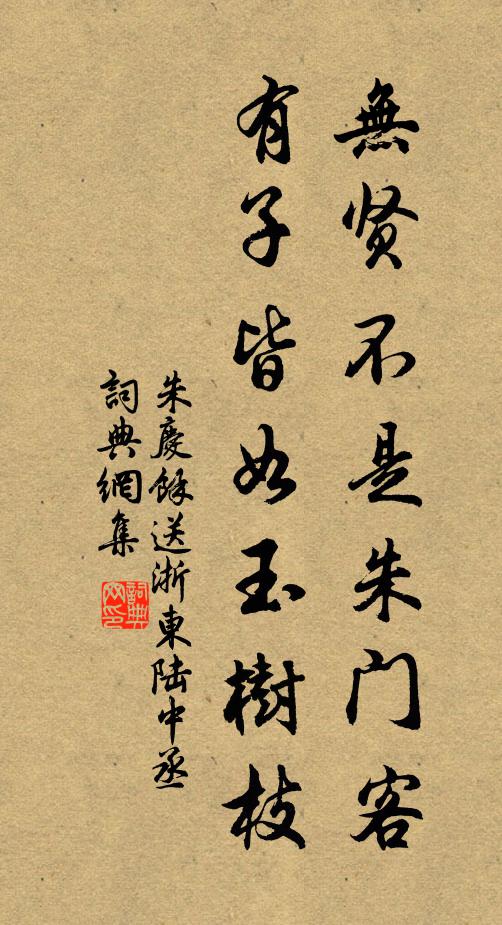 無贤不是朱门客
有子皆如玉樹枝
朱慶餘送浙東陆中丞
詞典網集
詞典网印